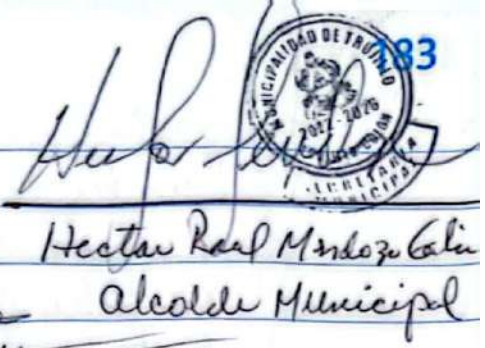 183
MUNICIPALIDAD DE TRUJILLO
2022-2026
COLON
SECRETARIA
MUNICIPAL
Hector Raul Mendoza
Alcalde Municipal